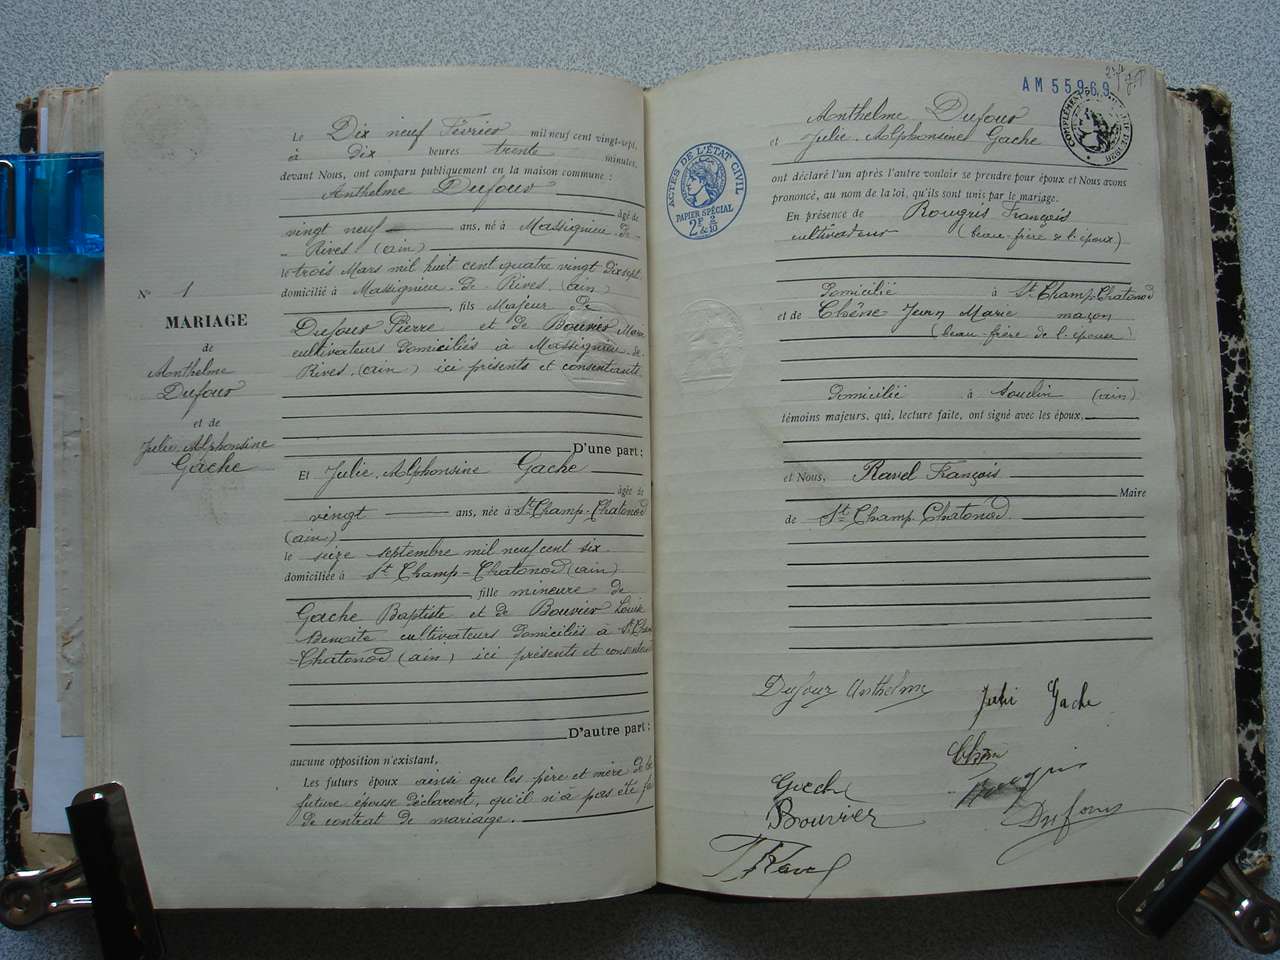 Nº 1
MARIAGE
de
Anthelme
Dufour
et de
Julie Alphonsine
Gache
Le Dix neuf Février mil neuf cent vingt-sept,
à dix heures trente minutes,
devant Nous, ont comparu publiquement en la maison commune :
Anthelme Dufour
âgé de
vingt neuf ans, né à Massignieu-de-
-Rives (ain)
le trois Mars mil huit cent quatre vingt dix sept
domicilié à Massignieu-de-Rives (ain)
, fils Majeur de
Dufour Pierre et de Bouvier Marie
cultivateurs domiciliés à Massignieu-de-
Rives (ain) ici présents et consentants
D'une part ;
Et Julie Alphonsine Gache
âgée de
vingt ans, née à St Champ-Chatonod
(ain)
le seize septembre mil neuf cent six
domiciliée à St Champ-Chatonod (ain)
, fille mineure de
Gache Baptiste et de Bouvier Louise
Benoite cultivateurs domiciliés à St Cham
-Chatonod (ain) ici présents et consentant
D'autre part ;
aucune opposition n'existant,
Les futurs époux ainsi que les père et mère de la
future épouse déclarent, qu'il n'a pas été fa
de contrat de mariage.
AM 55969
COMPLÉMENT
ACTES DE L'ÉTAT CIVIL
PAPIER SPÉCIAL
2F &2/10
Anthelme Dufour
et Julie Alphonsine Gache
ont déclaré l'un après l'autre vouloir se prendre pour époux et Nous avons
prononcé, au nom de la loi, qu'ils sont unis par le mariage.
En présence de Rougris François
cultivateur (beau-frère de l'époux)
domicilié à St Champ-Chatonod
et de Chêne Jean Marie maçon
(beau-frère de l'épouse)
domicilié à Soudin (ain)
témoins majeurs, qui, lecture faite, ont signé avec les époux,
et Nous, Ravel François
Maire
de St Champ Chatonod
Dufour Anthelme
Gache
Gache
Bouvier
Dufour
Ravel